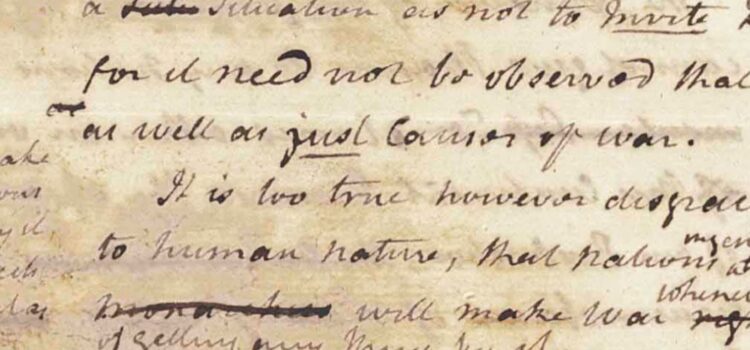 a situation as not to invite
for it need not be observed that
as well as just Causes of war.
It is too true however disgrac
to human nature, that nations in gen
monarchies will make war whenev
of getting any thing by it
ake